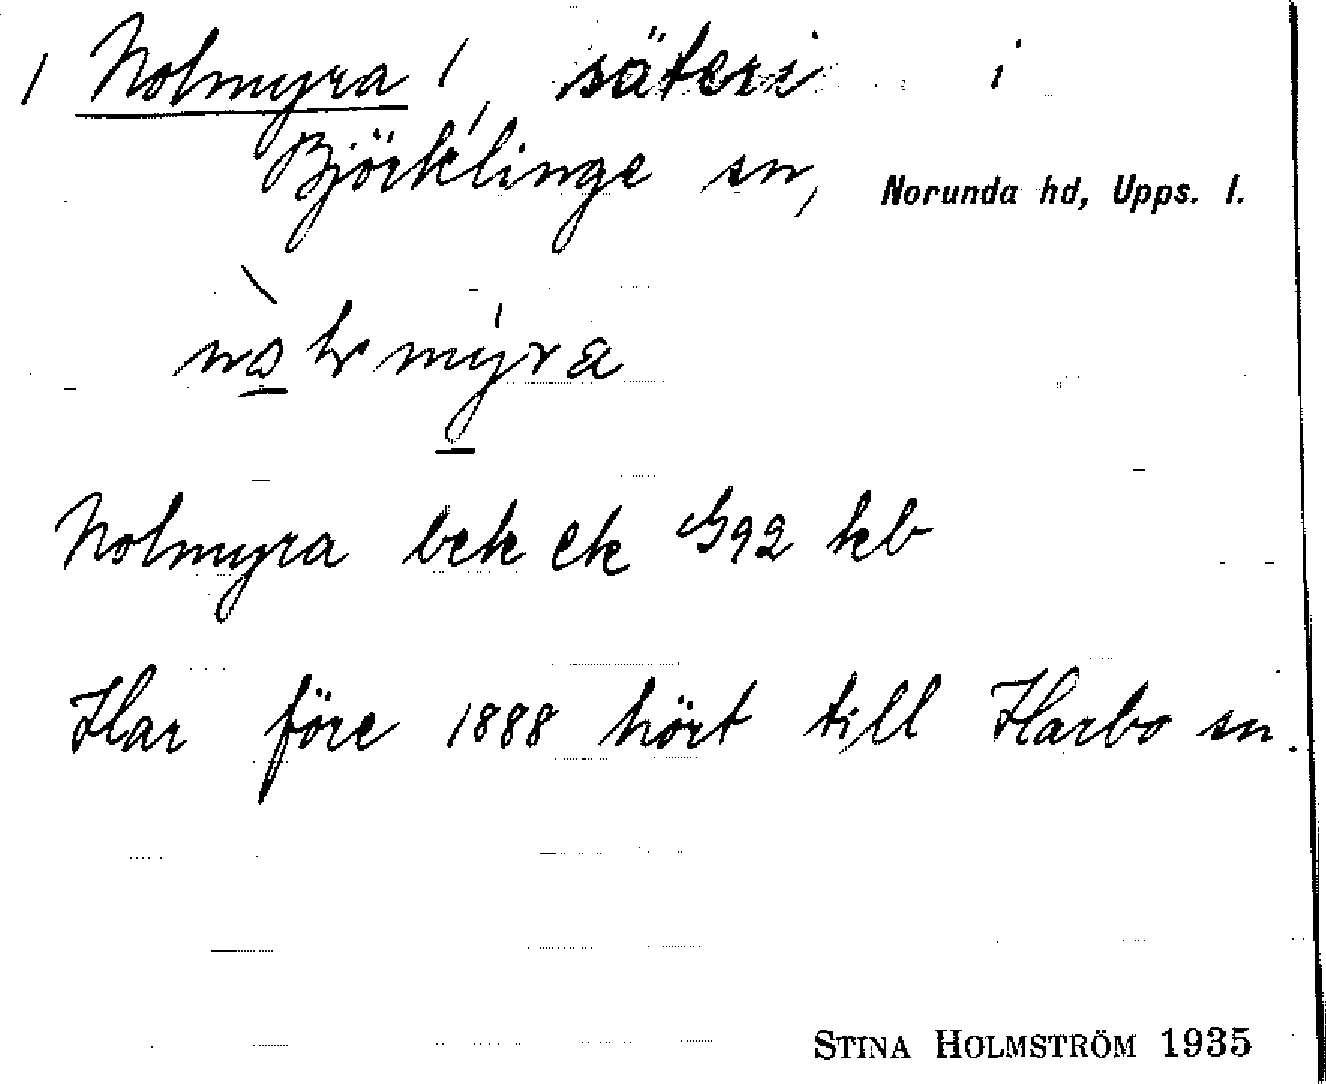 / Nolmyra /, säteri i
Björklinge sn, Norunda hd, Upps. l.
Nolmyra bek ek G92 kb
Har före 1888 hört till Harbo sn.
STINA HOLMSTRÖM 1935